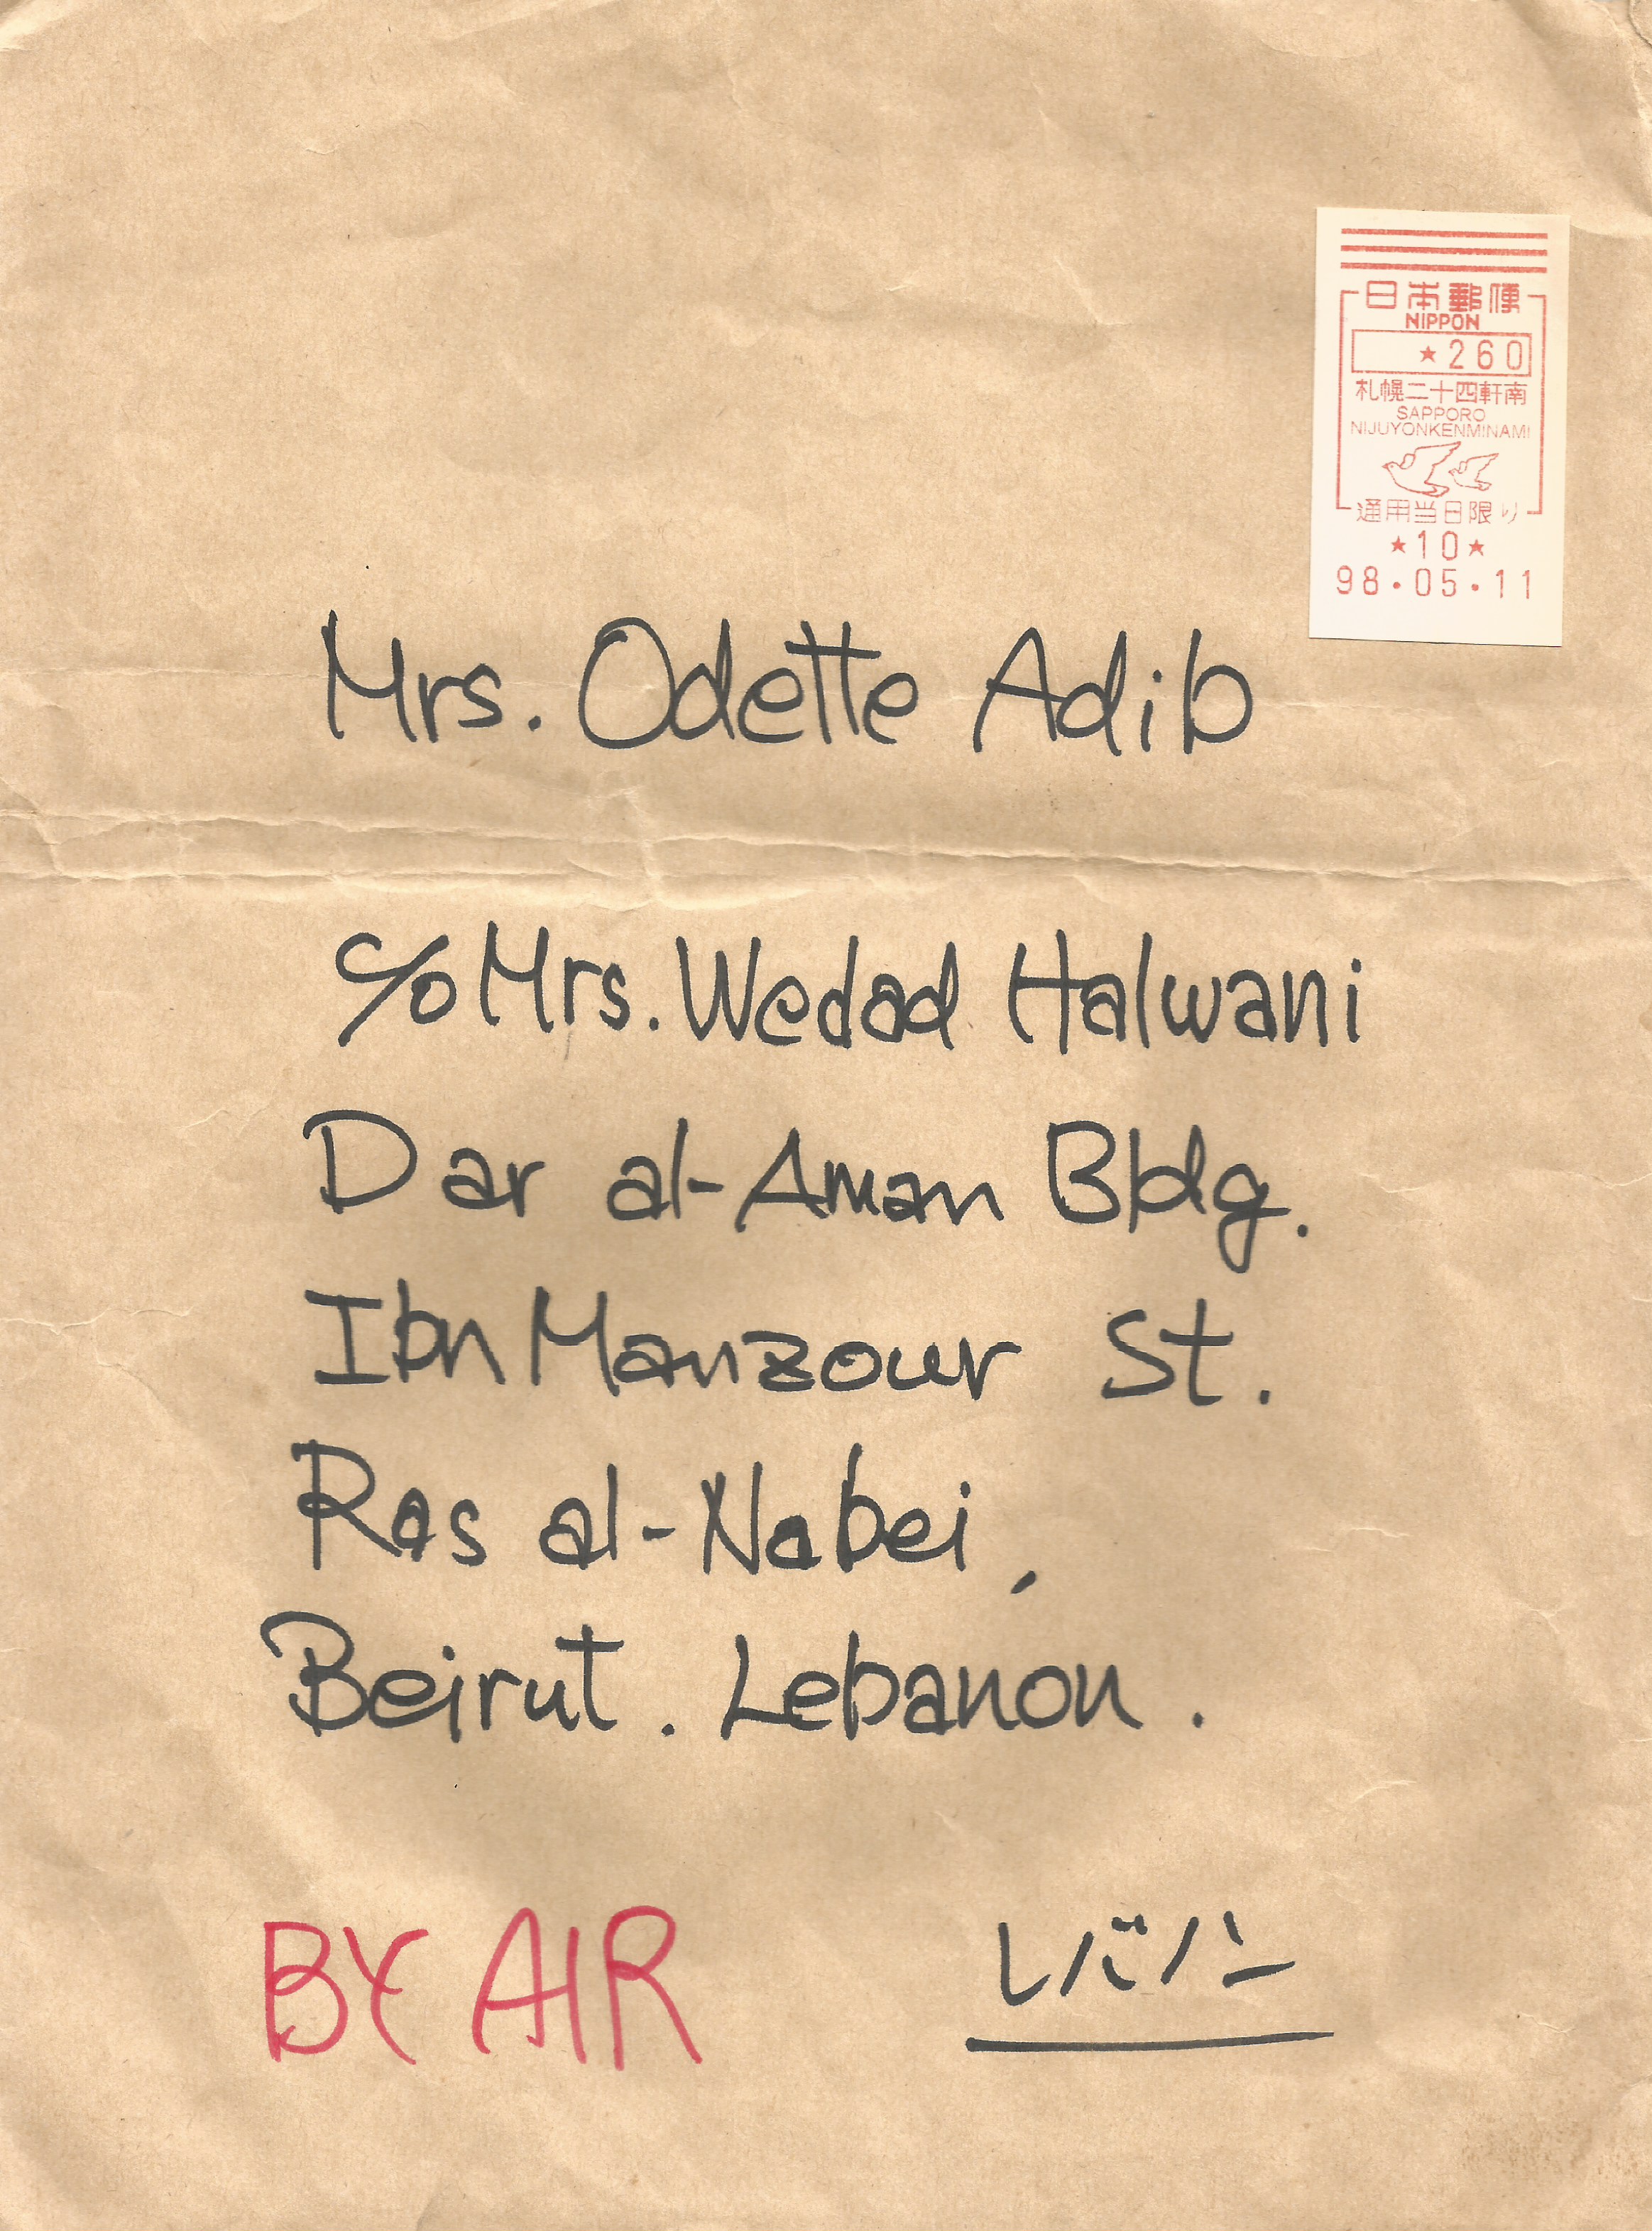 日本郵便
NIPPON
★260
札幌二十四軒南
SAPPORO
NIJUYONKENMINAMI
適用当日限り
★10★
98.05.11
Mrs. Odette Adib
c/o Mrs. Wedad Halwani
Dar al-Aman Bldg.
Ibn Manzour St.
Ras al-Nabei,
Beirut. Lebanon.
BY AIR レバノン